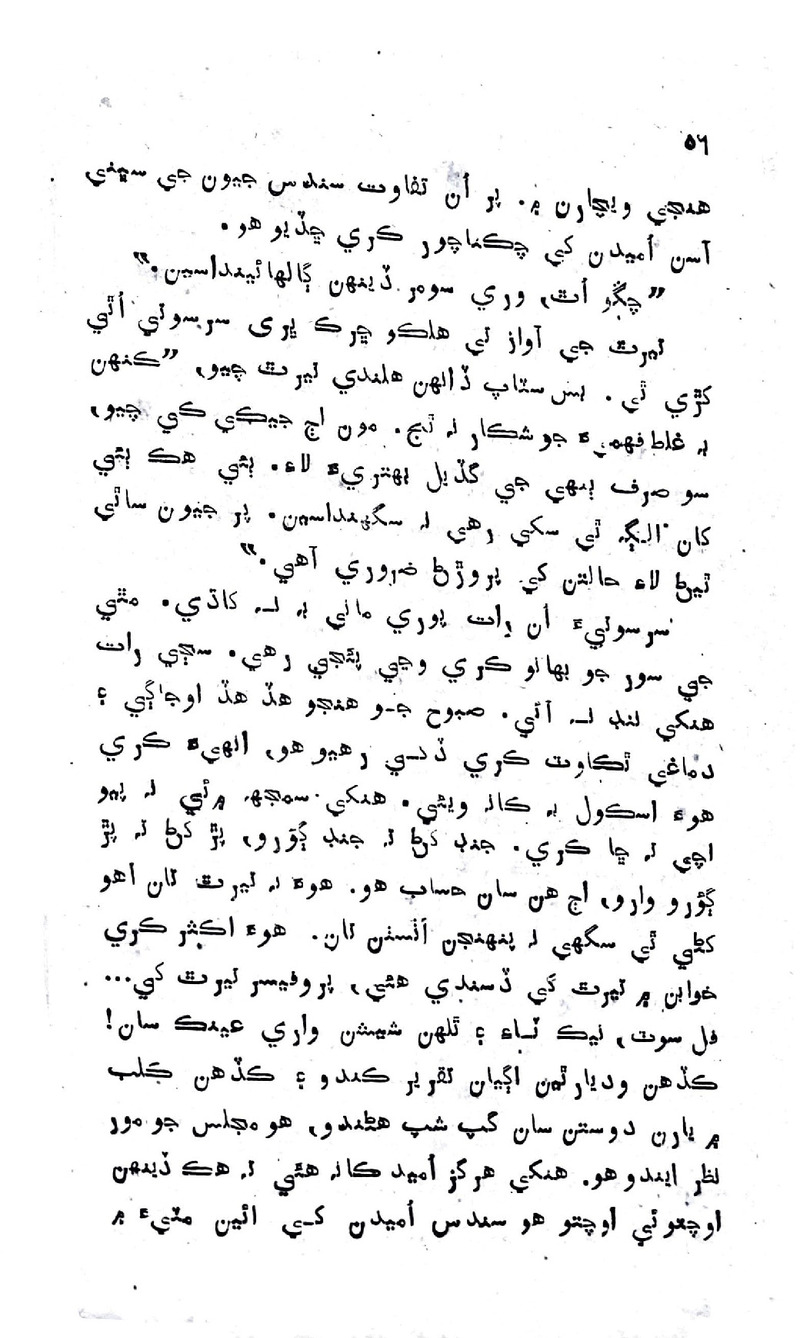 ٥٦
هنجي ويچارن ۾. پر اُن تفاوت سندس جيون جي سڀني
آسن اُميدن کي چڪناچور ڪري ڇڏيو هو.
”چڱو اُٿ، وري سومر ڏينهن ڳالهائينداسين.“
تيرٿ جي آواز تي هلڪو ڇرڪ ڀري سرسوتي اُٿي
کڙي ٿي. بس سٽاپ ڏانهن هلندي تيرٿ چيو، ”ڪنهن
بہ غلط فهميءَ جو شڪار نہ ٿج. مون اڄ جيڪي ڪي چيو،
سو صرف ٻنهي جي گڏيل بهتريءَ لاءِ. ٻئي هڪ ٻئي
کان الڳ ٿي سکي رهي نہ سگهنداسين. پر جيون ساٿي
ٿيڻ لاءِ حالتن کي پروڙڻ ضروري آهي.“
سرسوتيءَ اُن رات پوري ماني بہ نہ کاڌي. مٿي
جي سور جو بهانو ڪري وڃي پئجي رهي. سڄي رات
هنکي ننڊ نہ آئي. صبوح جو هنجو هڏ هڏ اوجاڳي ۽
دماغي ٿڪاوت ڪري ڏکي رهيو هو، انهيءَ ڪري
هوءَ اسڪول بہ ڪانہ ويئي. هنکي سمجهہ ۾ ئي نہ پيو
اچي تہ ڇا ڪري. جنڊ کڻ تہ جنڊ ڳؤرو، پڙ کڻ تہ پڙ
ڳؤرو وارو، اڄ هن سان حساب هو. هوءَ نہ تيرٿ تان آهو
کڻي ٿي سگهي نہ پنهنجن اُٿسٽن تان. هوءَ اڪثر ڪري
خوابن ۾ تيرٿ کي ڏسندي هئي، پروفيسر تيرٿ کي...
فل سوٽ، نيڪ ٽاءِ ۽ ٿلهن شيشن واري عينڪ سان!
ڪڏهن وديارٿين اڳيان تقرير ڪندو ۽ ڪڏهن ڪلب
۾ يارن دوستن سان گپ شپ هڻندو، هو مجلس جو مور
نظر ايندو هو. هنکي هرگز اُميد ڪانہ هئي تہ هڪ ڏينهن
اوچتوئي اوچتو هو سندس اُميدن کي ائين مٽيءَ ۾